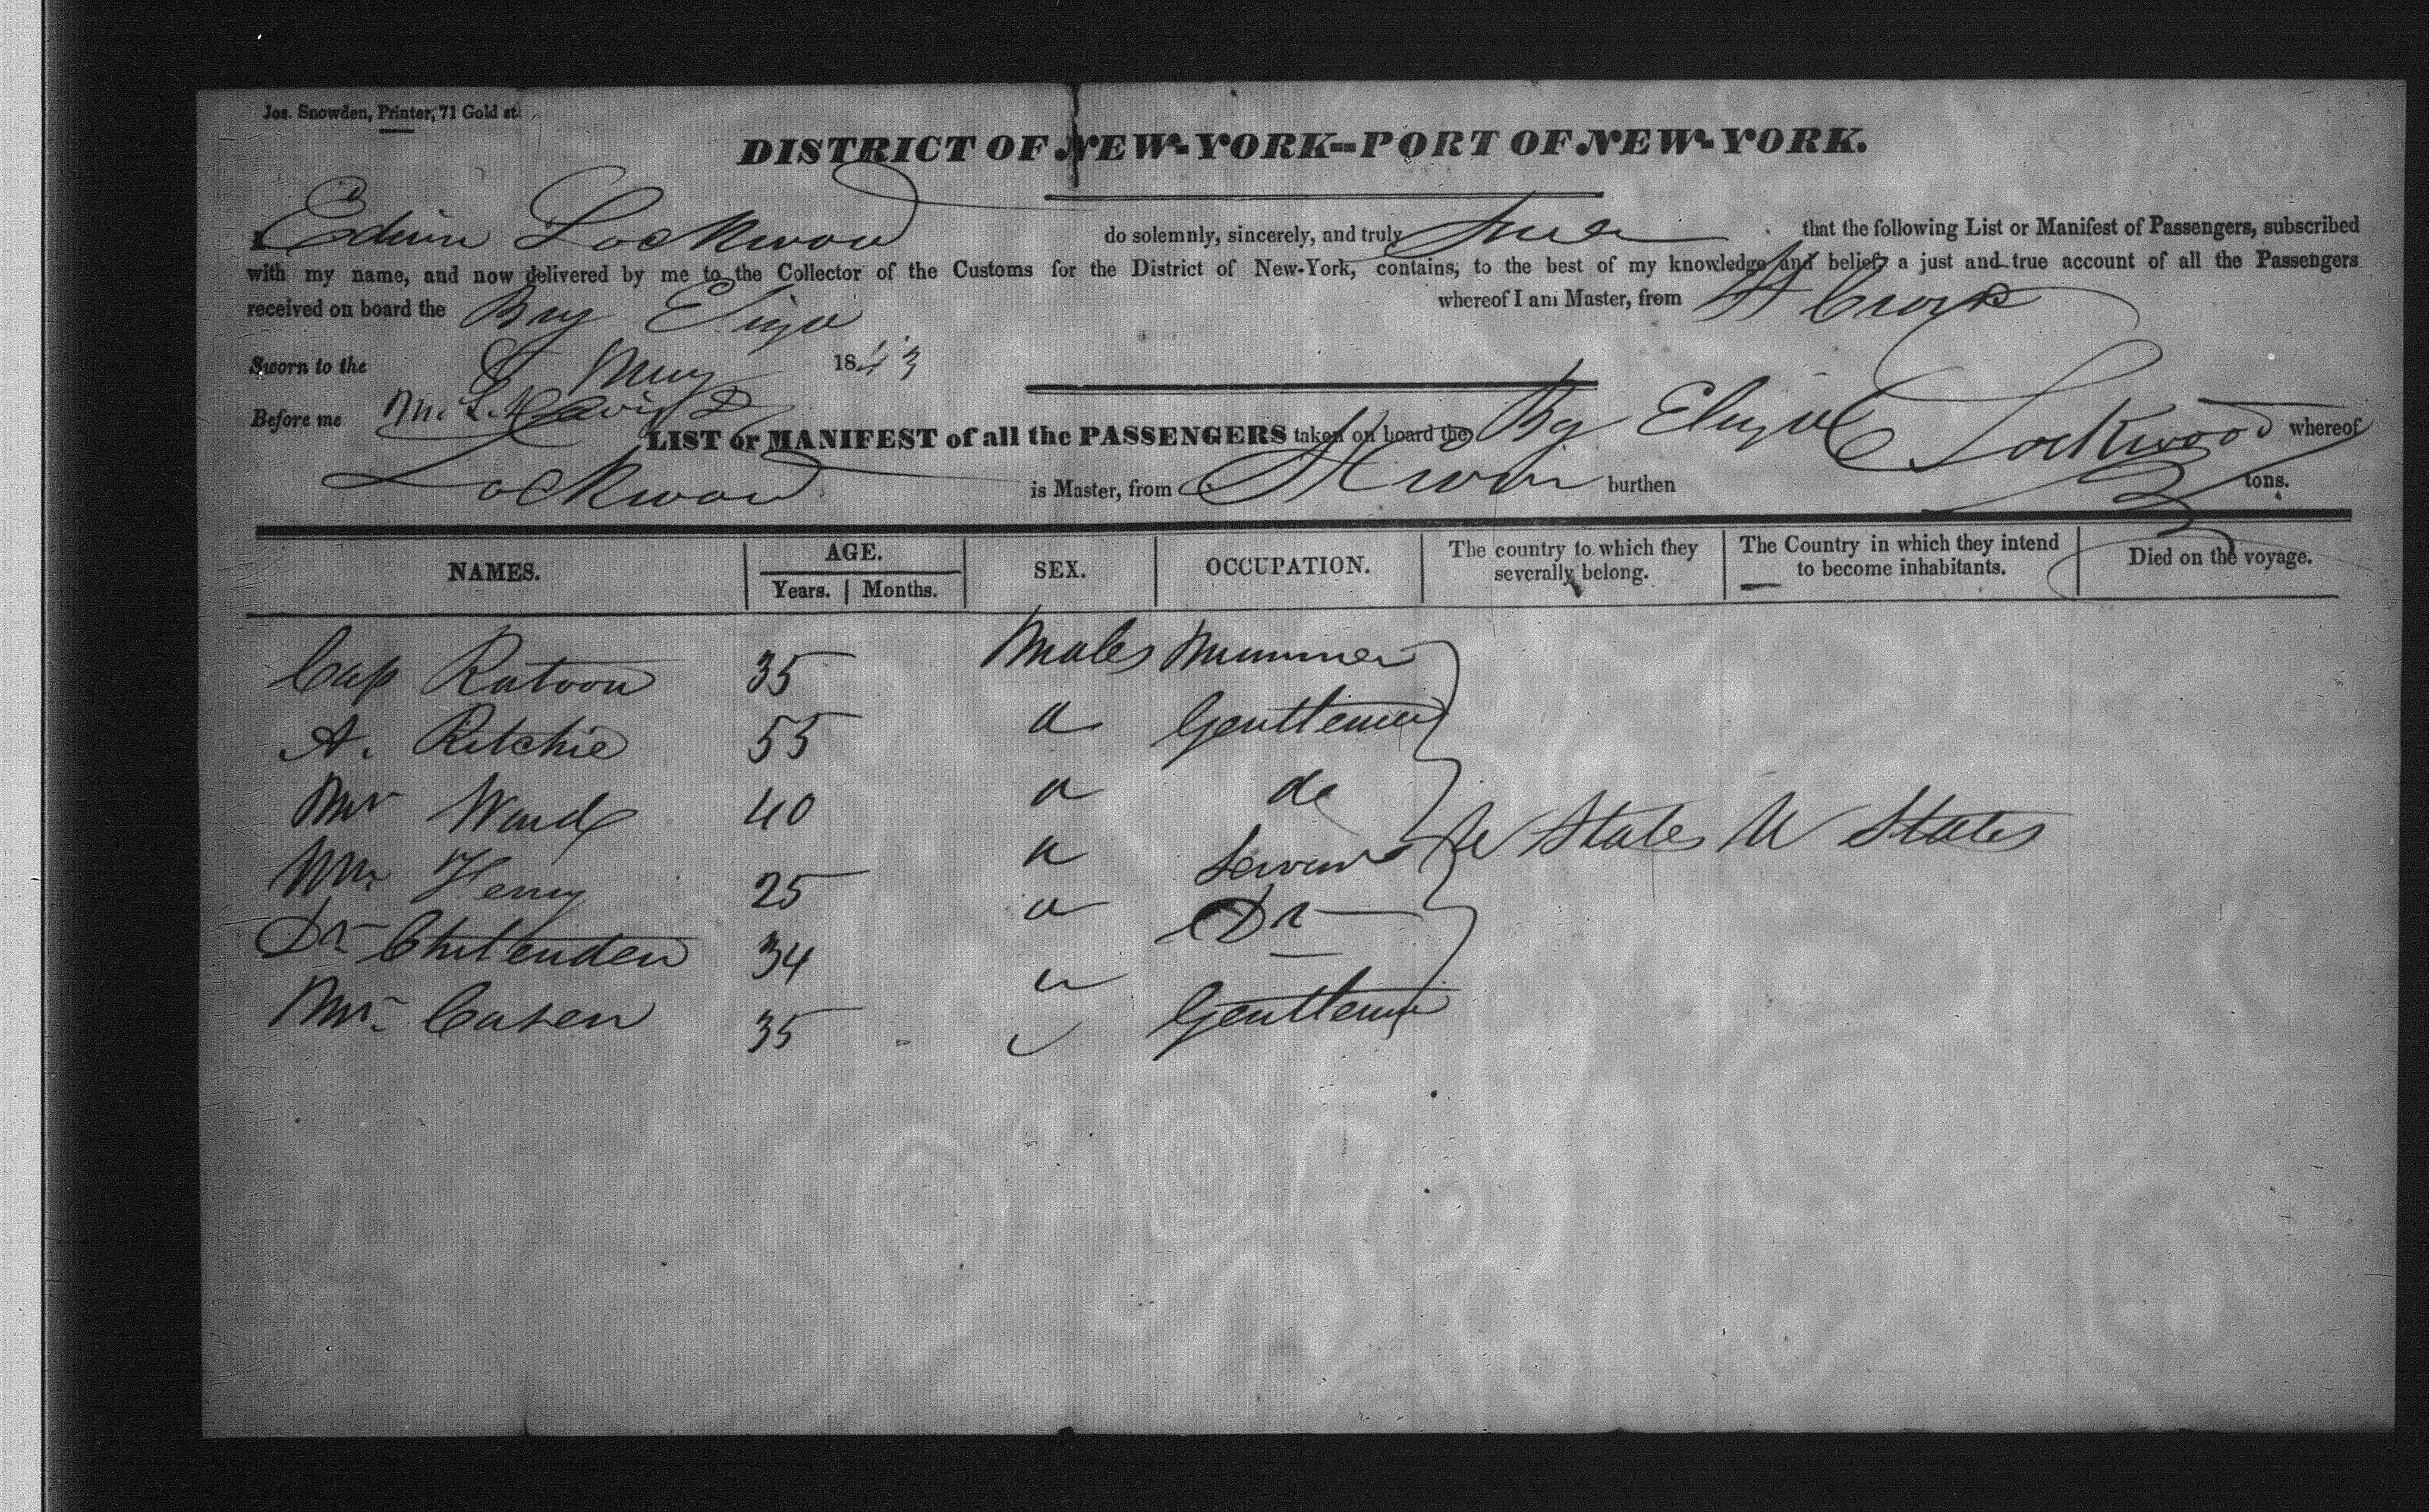 Jos. Snowden, Printer, 71 Gold st.
DISTRICT OF NEW-YORK--PORT OF NEW-YORK.
I Edwin Lockwood do solemnly, sincerely, and truly that the following List or Manifest of Passengers, subscribed
with my name, and now delivered by me to the Collector of the Customs for the District of New-York, contains, to the best of my knowledge and belief, a just and true account of all the Passengers
received on board the Brig Eliza whereof I am Master, from St Croix
Sworn to the May 1843
Before me
LIST or MANIFEST of all the PASSENGERS taken on board the Bg Eliza E Lockwood whereof
Lockwood is Master, from St Croix burthen tons.
NAMES. AGE. SEX. OCCUPATION. The country to which they severally belong. The Country in which they intend to become inhabitants. Died on the voyage.
Years. Months.
Cap Ratoon 35 Males Marriner
A. Ritchie 55 " Gentleman
Mr Ward 40 " do
Wm Henry 25 " Servant U States U States
Dr Chittenden 34 " Dr
Mr. Casen 35 " Gentleman